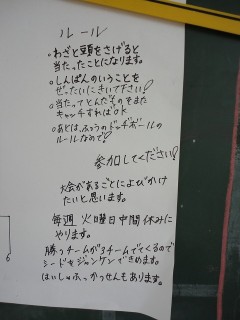 ルール
・わざと頭をさげると
当たったことになります。
○しんぱんのいうことを
ぜったいにきいて下さい!
○当たってとんだものをまた
キャッチすればOK
○あとは、ふつうのドッチボールの
ルールなので!
参加してください!
大会があるごとによびかけ
たいと思います。
毎週 火曜日中間休みに
やります。
勝つチームが3チームでてくるので
シードをジャンケンできめます。
はいしゃふっかつせんもあります。